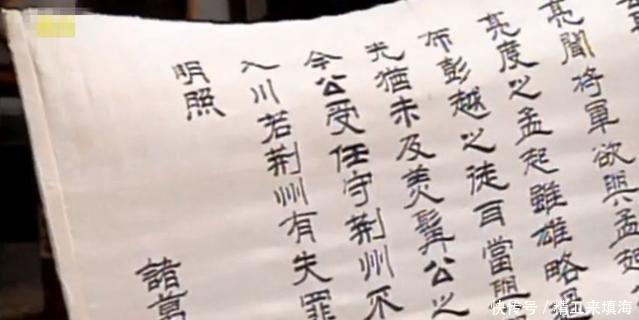 亮聞將軍欲與孟起
亮度之孟起雖雄略
布彭越之徒耳當
光猶未及美髯公之
今公受任守荊州不
入川若荊州有失罪
明照
諸葛
快传号 / 精卫来填海